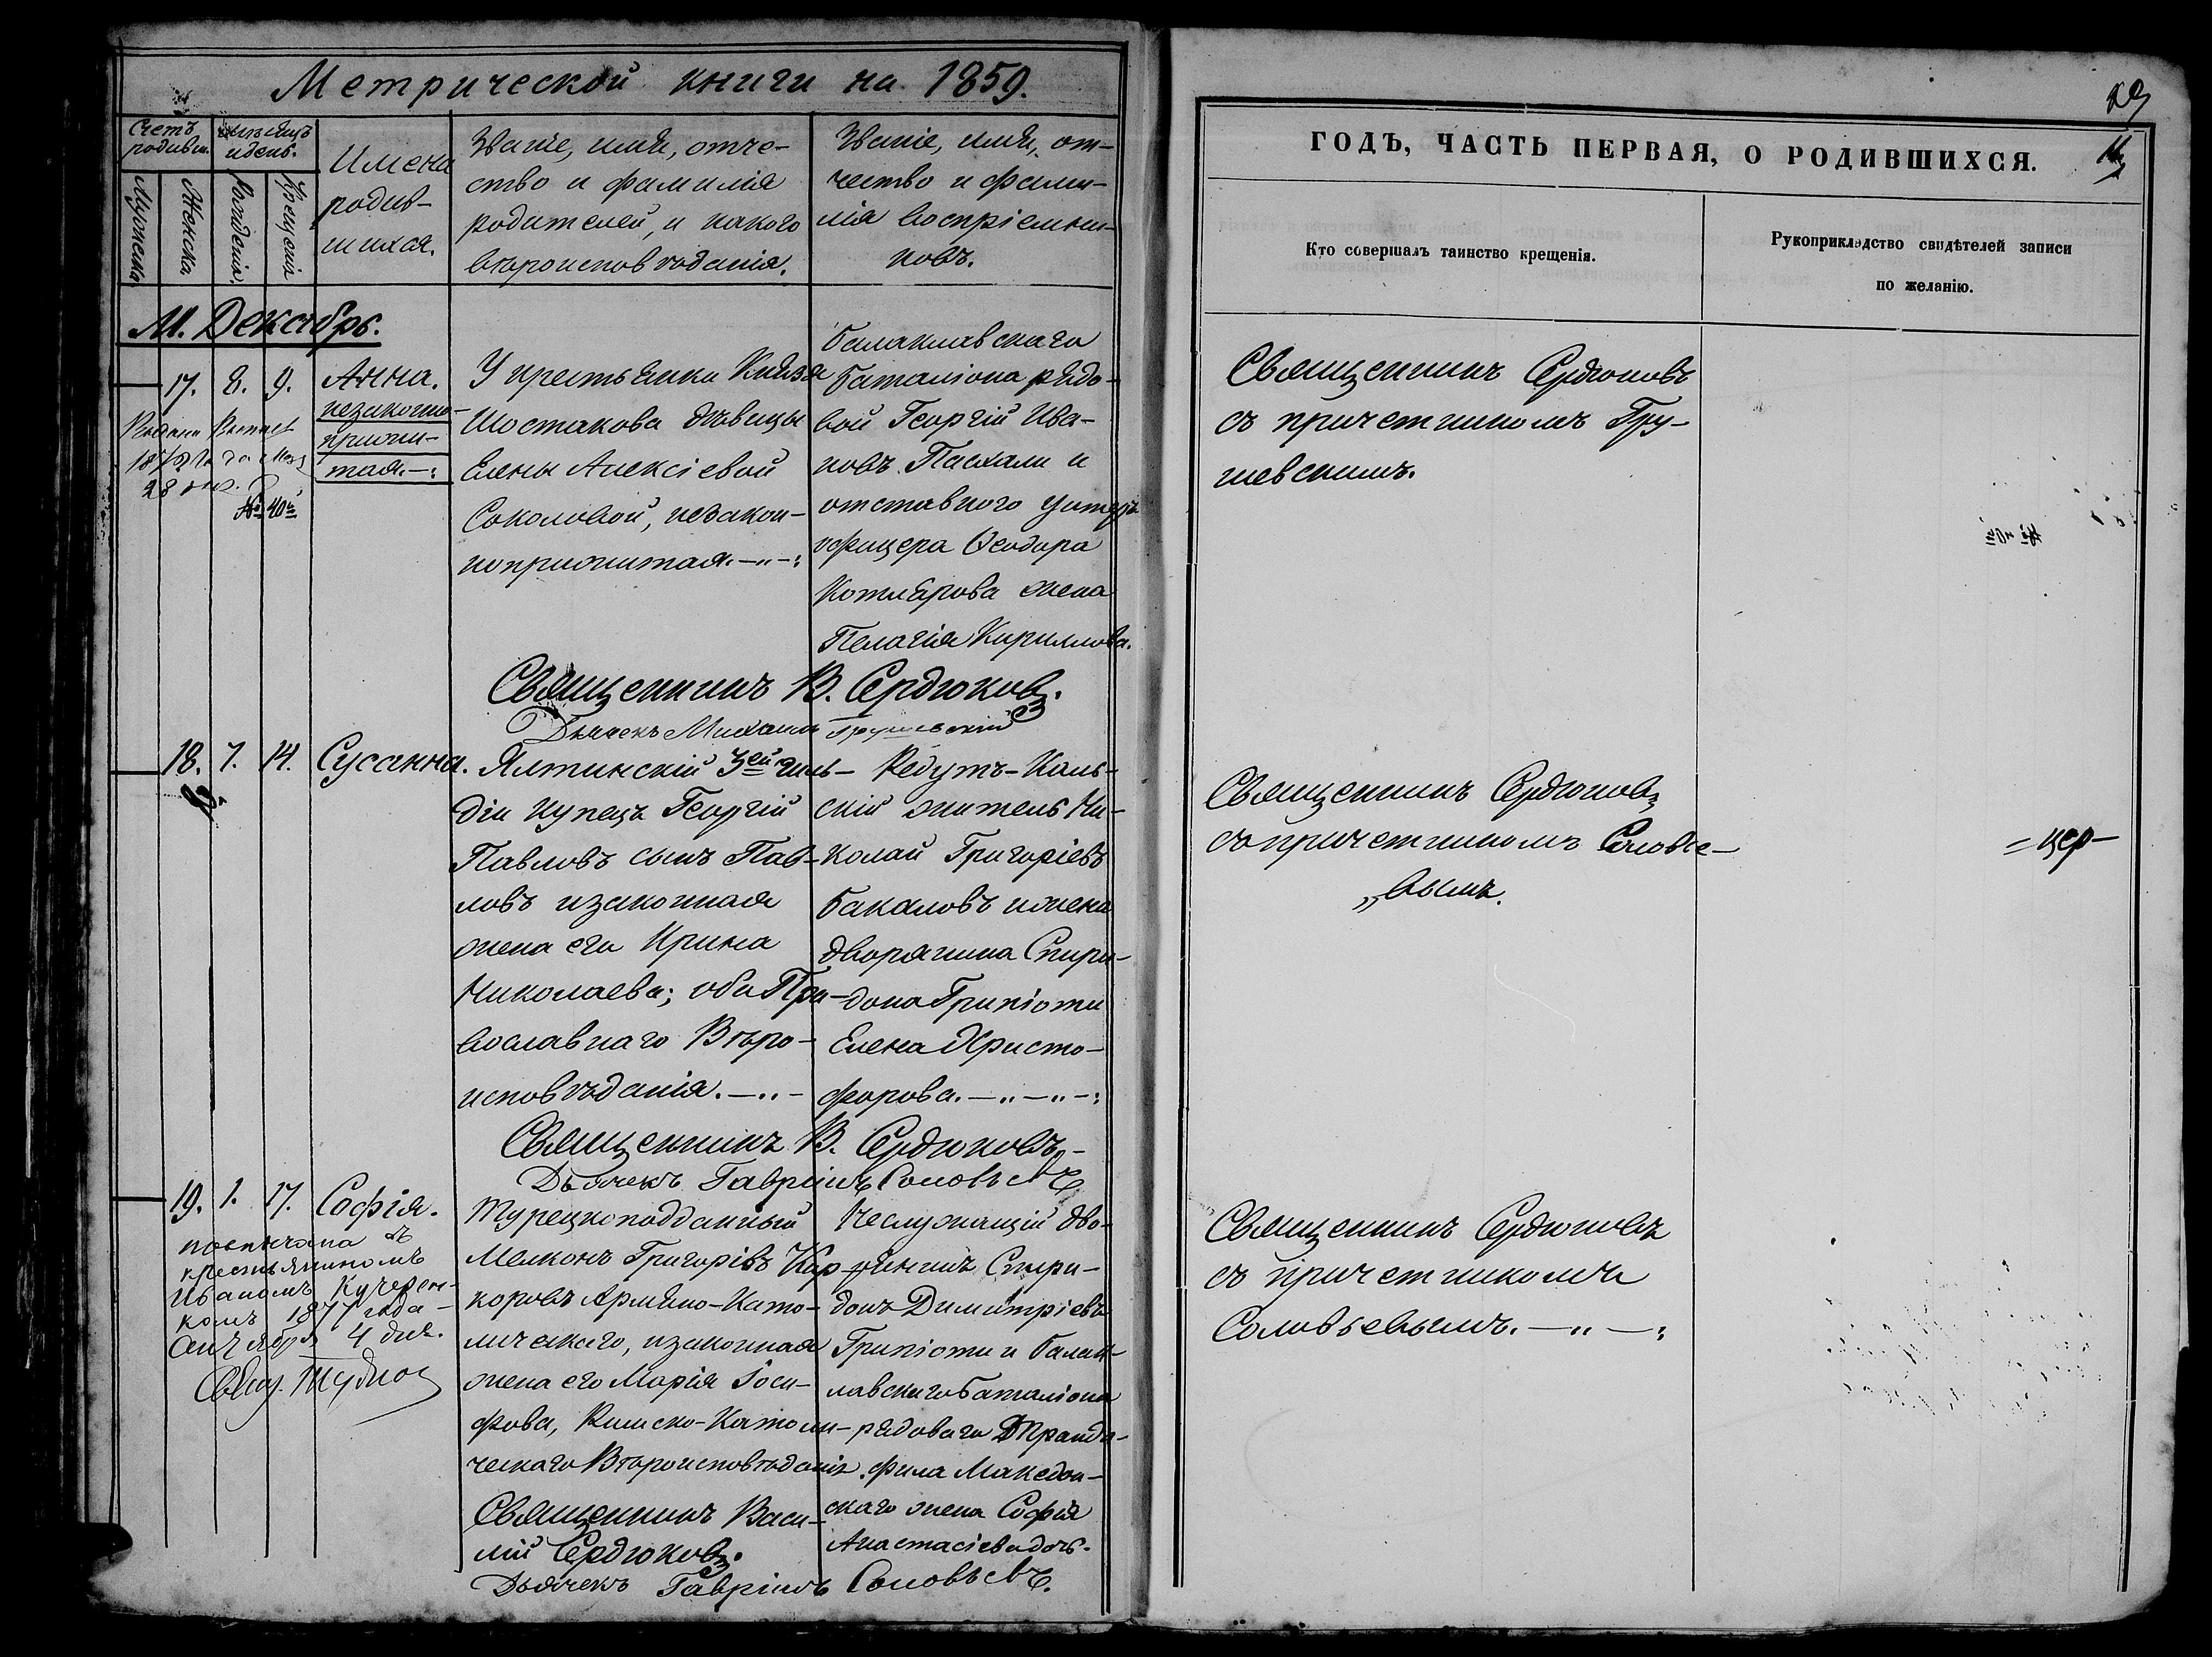 Метрической книги на 1859.
Счетъ родивш.
Мѣсяцъ и день.
Мужеска
Женска
Рожденія.
Крещенія
Имена
родив-
шихся.
Званіе, имя, отче-
ство и фамилія
родителей, и какого
вѣроисповѣданія.
Званіе, имя, от-
чество и фами-
лія воспріемни-
ковъ.
М. Декабрь.
17. 8. 9. Анна.
незаконно-
прижи-
тая.-:
28
№ 40й
У крестьянки Князя
Шостакова дѣвицы
Елены Алексіевой
Соколовой, незакон-
ноприжитая.-"-:
Балаклавскаго
баталіона рядо-
вой Георгій Ива-
новъ Пасхали и
отставного унтеръ
офицера Ѳеодора
Котлярова жена
Пелагія Кириллова.
Священникъ В. Сердюковъ.
Дьячекъ Михаилъ Грушевскій
18. 7. 14. Сусанна.
Ялтинскій 3ей гиль-
діи купецъ Георгій
Павловъ сынъ Пав-
ловъ и законная
жена его Ирина
Николаева; оба Пра-
вославнаго Вѣро-
исповѣданія.-"-
Редутъ-Каль-
скій житель Ни-
колай Григоріевъ
Бакаловъ и жена
дворянина Спири-
дона Грипіоти
Елена Христо-
форова.-"-"-:
Священникъ В. Сердюковъ
Дьячекъ Гавріилъ Соловьевъ
19. 1. 17. Софія.
повѣнчана съ
крестьяниномъ
Иваномъ Кучерен-
комъ 1877 года
4 дня.
Турецкоподданный
Мелконъ Григорівъ Кар-
коровъ Армяно-Като-
лическаго, и законная
жена его Марія Іоси-
фова, Римско-Католи-
ческаго Вѣроисповѣданія.
Неслужащій дво-
рянинъ Спири-
донъ Димитріевъ
Грипіоти и Балак-
лавскаго баталіона
рядоваго
фила Македон-
скаго жена Софія
Анастасіева дочь.
Священникъ Васи-
лій Сердюковъ.
Дьячекъ Гавріилъ Соловьевъ.
ГОДЪ, ЧАСТЬ ПЕРВАЯ, О РОДИВШИХСЯ.
Кто совершалъ таинство крещенія.
Рукоприкладство свидѣтелей записи
по желанію.
Священникъ Сердюковъ
съ причетникомъ Гру-
шевскимъ.
Священникъ Сердюковъ
съ причетникомъ Соловье-
„вымъ.
Священникъ Сердюковъ
съ причетникомъ
Соловьевымъ.-"-: